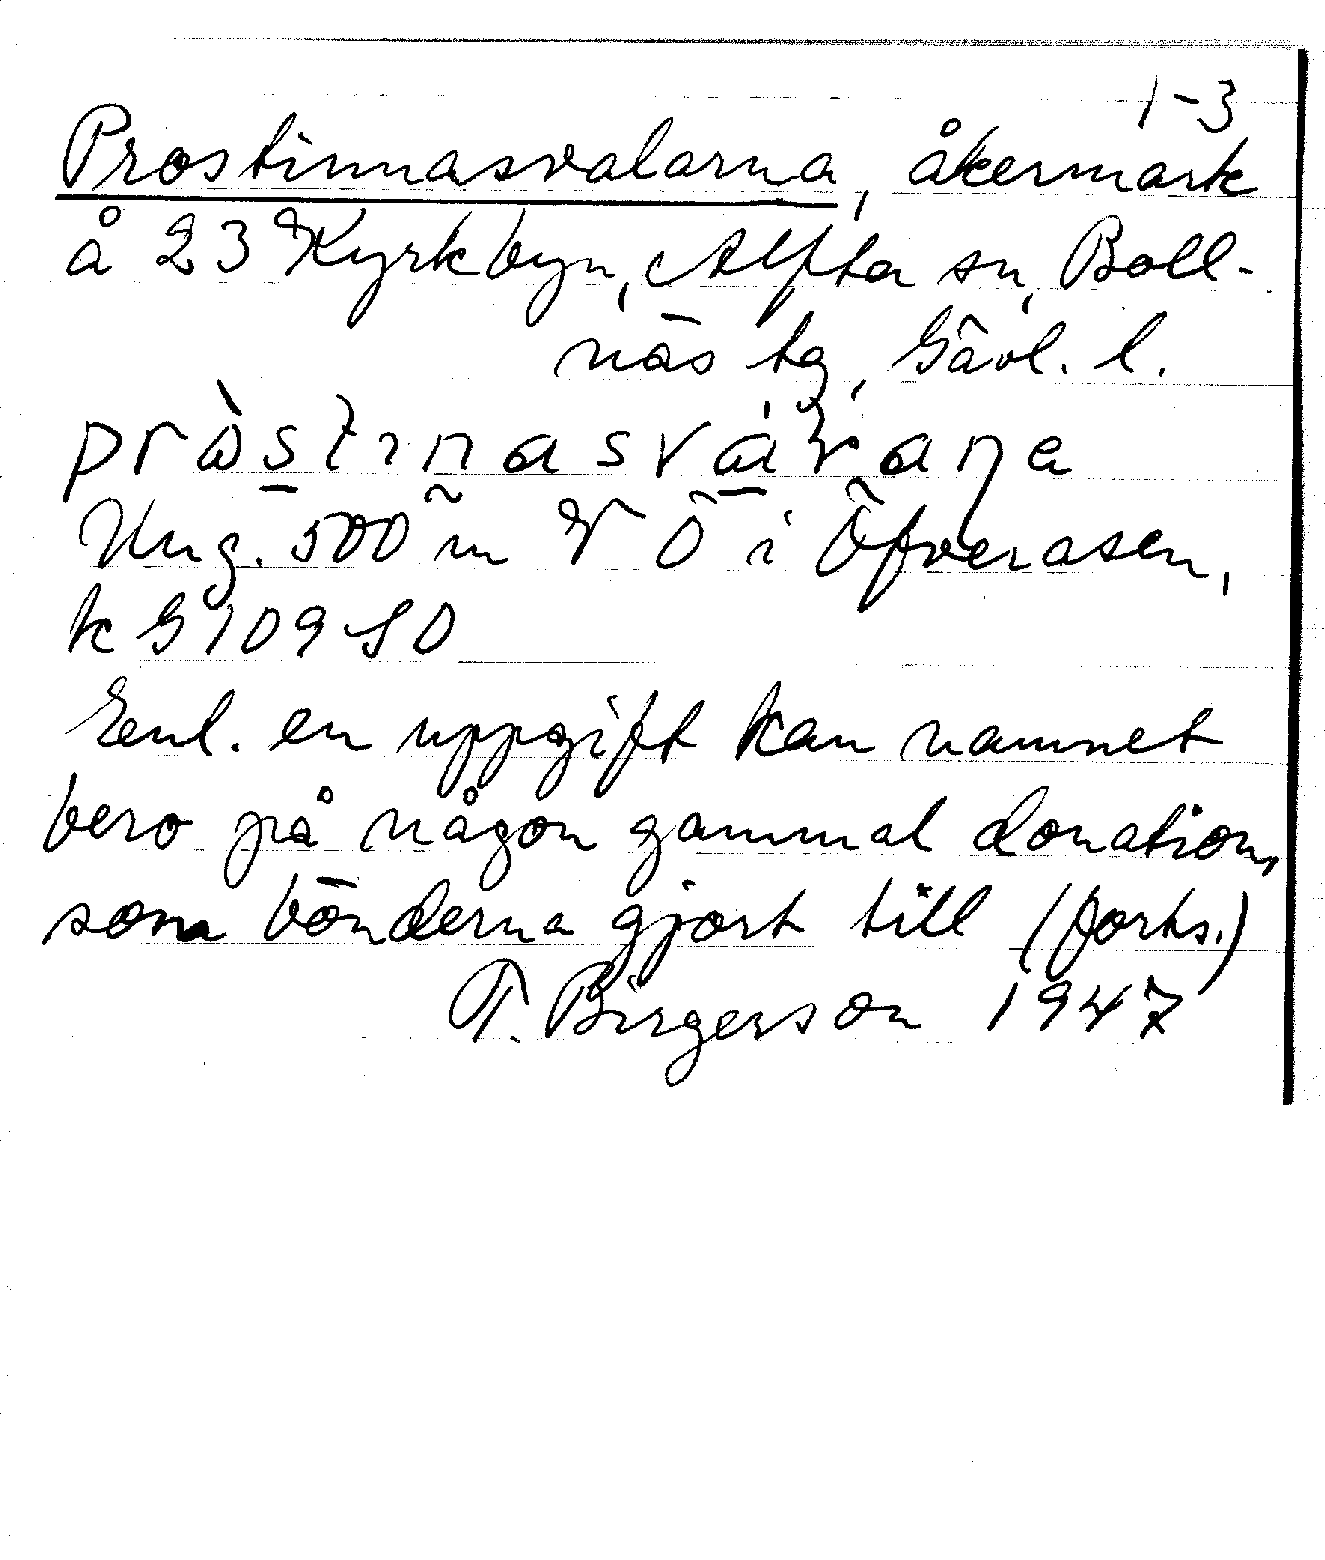 1-3
Prostinnasvalarna, åkermark
å 23 Kyrkbyn, Alfta sn, Boll-
näs tg, Gävl. l.
Ung. 500 m V Ö i Öfverasen,
k G 109 SO
Enl. en uppgift kan namnet
bero på någon gammal donation,
som bönderna gjort till (forts.)
T. Birgerson 1947